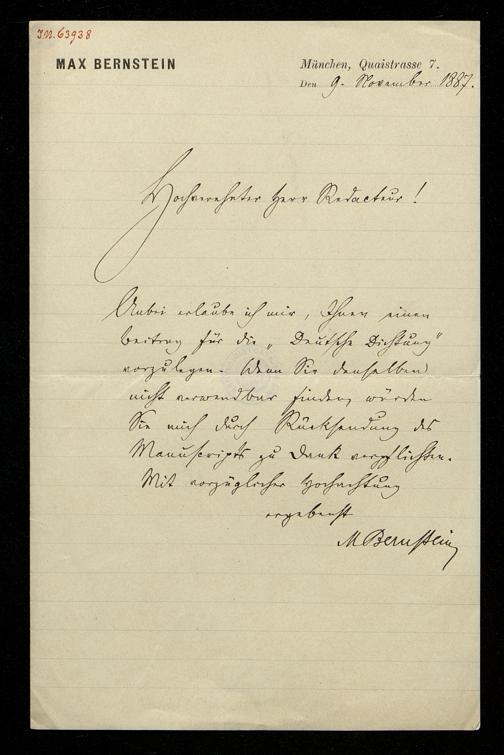 I.N. 63938
MAX BERNSTEIN
München, Quaistrasse 7.
Den 9. November 1887.
Hochverehrter Herr Redacteur!
Anbei erlaube ich mir, Ihnen einen
Beitrag für die „Deutsche Dichtung“
vorzulegen. Wenn Sie denselben
nicht verwendbar finden, würden
Sie mich durch Rücksendung des
Manuscripts zu Dank verpflichten.
Mit vorzüglicher Hochachtung
ergebenst
M Bernstein